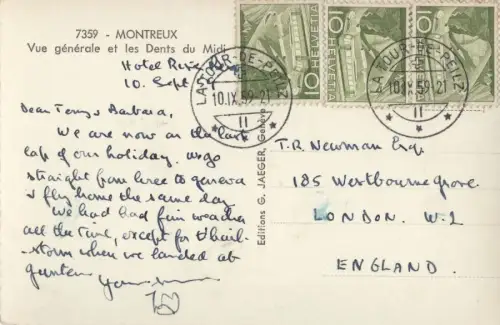 7359 - MONTREUX
Vue générale et les Dents du Midi
Hotel
10. Sept
Dear Terry & Barbara,
We are now on the last
lap of our holiday. We go
straight from here to geneva
& fly home the same day
We had had fair weather
all the time, except for hail-
storm when we landed at
Editions G. JAEGER, Genève
HELVETIA 10
HELVETIA 10
HELVETIA 10
LA TOUR-DE-PEILZ
10.IX.59-21
II
LA TOUR-DE-PEILZ
10.IX.59-21
II
T.R. Newman Esq.
185 Westbourne grove.
LONDON. W.2
ENGLAND.